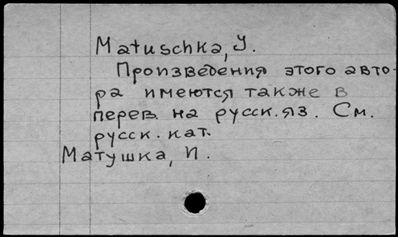 Matuschka, J.
Произведения этого авто-
ра имеются также в
перев. на русск. яз. См.
русск. кат.
Матушка, И.